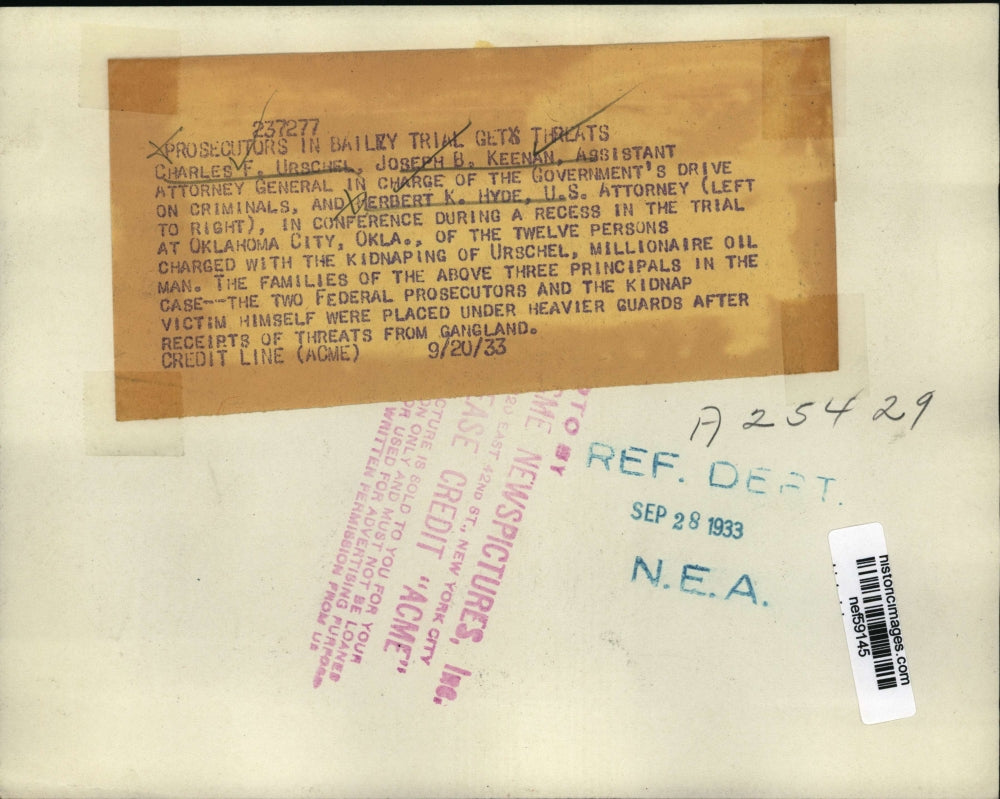 237277
PROSECUTORS IN BAILEY TRIAL GETS THREATS
CHARLES F. URSCHEL, JOSEPH B. KEENAN, ASSISTANT
ATTORNEY GENERAL IN CHARGE OF THE GOVERNMENT'S DRIVE
ON CRIMINALS, AND HERBERT K. HYDE, U.S. ATTORNEY (LEFT
TO RIGHT), IN CONFERENCE DURING A RECESS IN THE TRIAL
AT OKLAHOMA CITY, OKLA., OF THE TWELVE PERSONS
CHARGED WITH THE KIDNAPING OF URSCHEL, MILLIONAIRE OIL
MAN. THE FAMILIES OF THE ABOVE THREE PRINCIPALS IN THE
CASE--THE TWO FEDERAL PROSECUTORS AND THE KIDNAP
VICTIM HIMSELF WERE PLACED UNDER HEAVIER GUARDS AFTER
RECEIPTS OF THREATS FROM GANGLAND.
CREDIT LINE (ACME) 9/20/33
A 254 29
REF. DEPT.
SEP 28 1933
N.E.A.
OTO BY
ME NEWSPICTURES, INC.
20 EAST 42ND ST., NEW YORK CITY
EASE CREDIT "ACME"
CTURE IS SOLD TO YOU FOR YOUR
ON ONLY AND MUST NOT BE LOANED
OR USED FOR ADVERTISING PURPOSES
WRITTEN PERMISSION FROM US
historicimages.com
nef59145